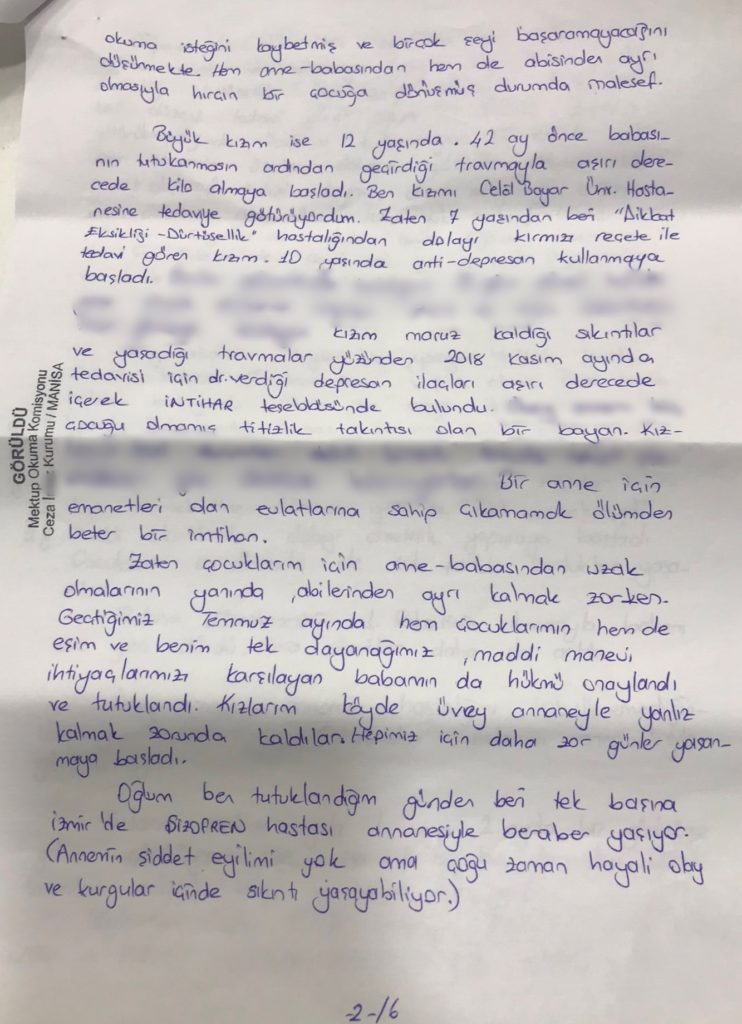 okuma isteğini kaybetmiş ve birçok şeyi başaramayacağını
düşünmekte. Hem anne-babasından hem de abisinden ayrı
olmasıyla hırçın bir çocuğa dönüşmüş durumda malesef.
Büyük kızım ise 12 yaşında. 42 ay önce babası-
nın tutukanmasın ardından geçirdiği travmayla aşırı dere-
cede kilo almaya başladı. Ben kızımı Celâl Bayar Ünv. Hosta-
nesine tedaviye götürüyordum. Zaten 7 yaşından beri "Dikkat
Eksikliği-Dürtüsellik" hastalığından dolayı kırmızı reçete ile
tedavi gören kızım. 10 yaşında anti-depresan kullanmaya
başladı.
kızım maruz kaldığı sıkıntılar
ve yaşadığı travmalar yüzünden 2018 kasım ayında
tedavisi için dr. verdiği depresan ilaçları aşırı derecede
içerek İNTİHAR teşebbüsünde bulundu.
çocuğu olmamış titizlik takıntısı olan bir bayan. Kız-
Bir anne için
emanetleri olan evlatlarına sahip çıkamamak ölümden
beter bir imtihan.
Zaten çocuklarım için anne-babasından uzak
olmalarının yanında, abilerinden ayrı kalmak zorken.
Geçtiğimiz Temmuz ayında hem çocuklarımın hem de
eşim ve benim tek dayanağımız, maddi manevi
ihtiyaçlarımızı karşılayan babamın da hükmü onaylandı
ve tutuklandı. Kızlarım köyde üvey annaneyle yanlız
kalmak zorunda kaldılar. Hepimiz için daha zor günler yaşan-
maya başladı.
Oğlum ben tutuklandığım günden beri tek başına
İzmir'de ŞİZOFREN hastası annanesiyle beraber yaşıyor.
(Annemin şiddet eyilimi yok ama çoğu zaman hayali olay
ve kurgular içinde sıkıntı yaşayabiliyor.)
-2-/6
GÖRÜLDÜ
Mektup Okuma Komisyonu
Ceza Kurumu / MANİSA